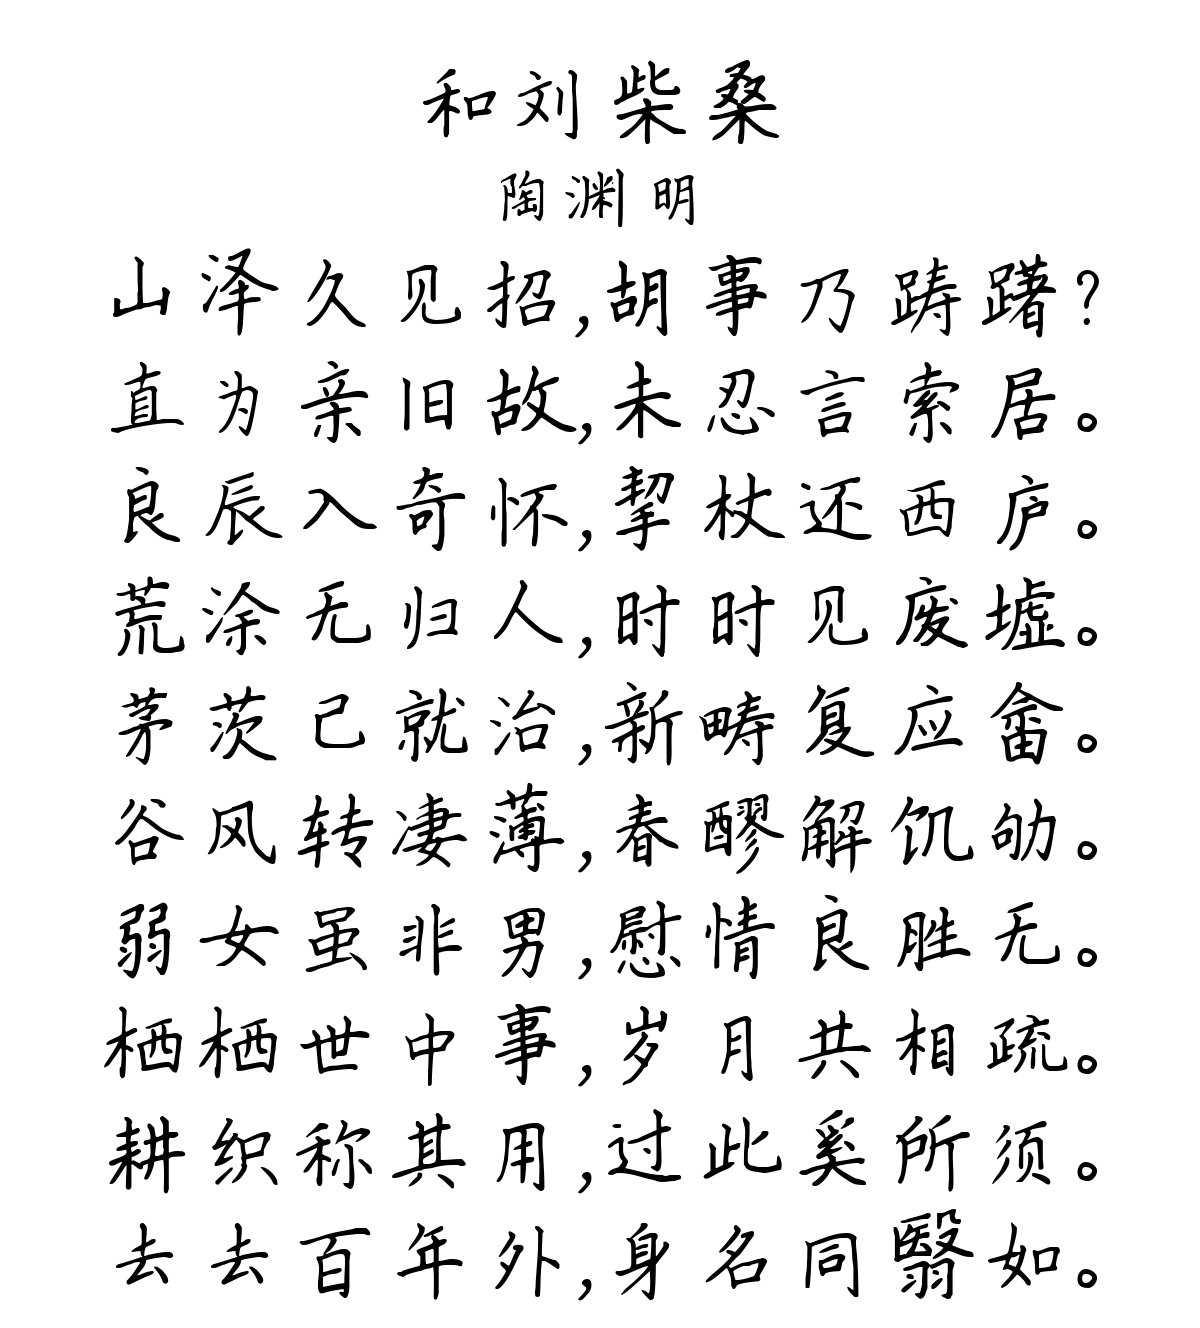 和刘柴桑
陶渊明
山泽久见招,胡事乃踌躇?
直为亲旧故,未忍言索居。
良辰入奇怀,挈杖还西庐。
荒涂无归人,时时见废墟。
茅茨已就治,新畴复应畲。
谷风转凄薄,春醪解饥劬。
弱女虽非男,慰情良胜无。
栖栖世中事,岁月共相疏。
耕织称其用,过此奚所须。
去去百年外,身名同翳如。